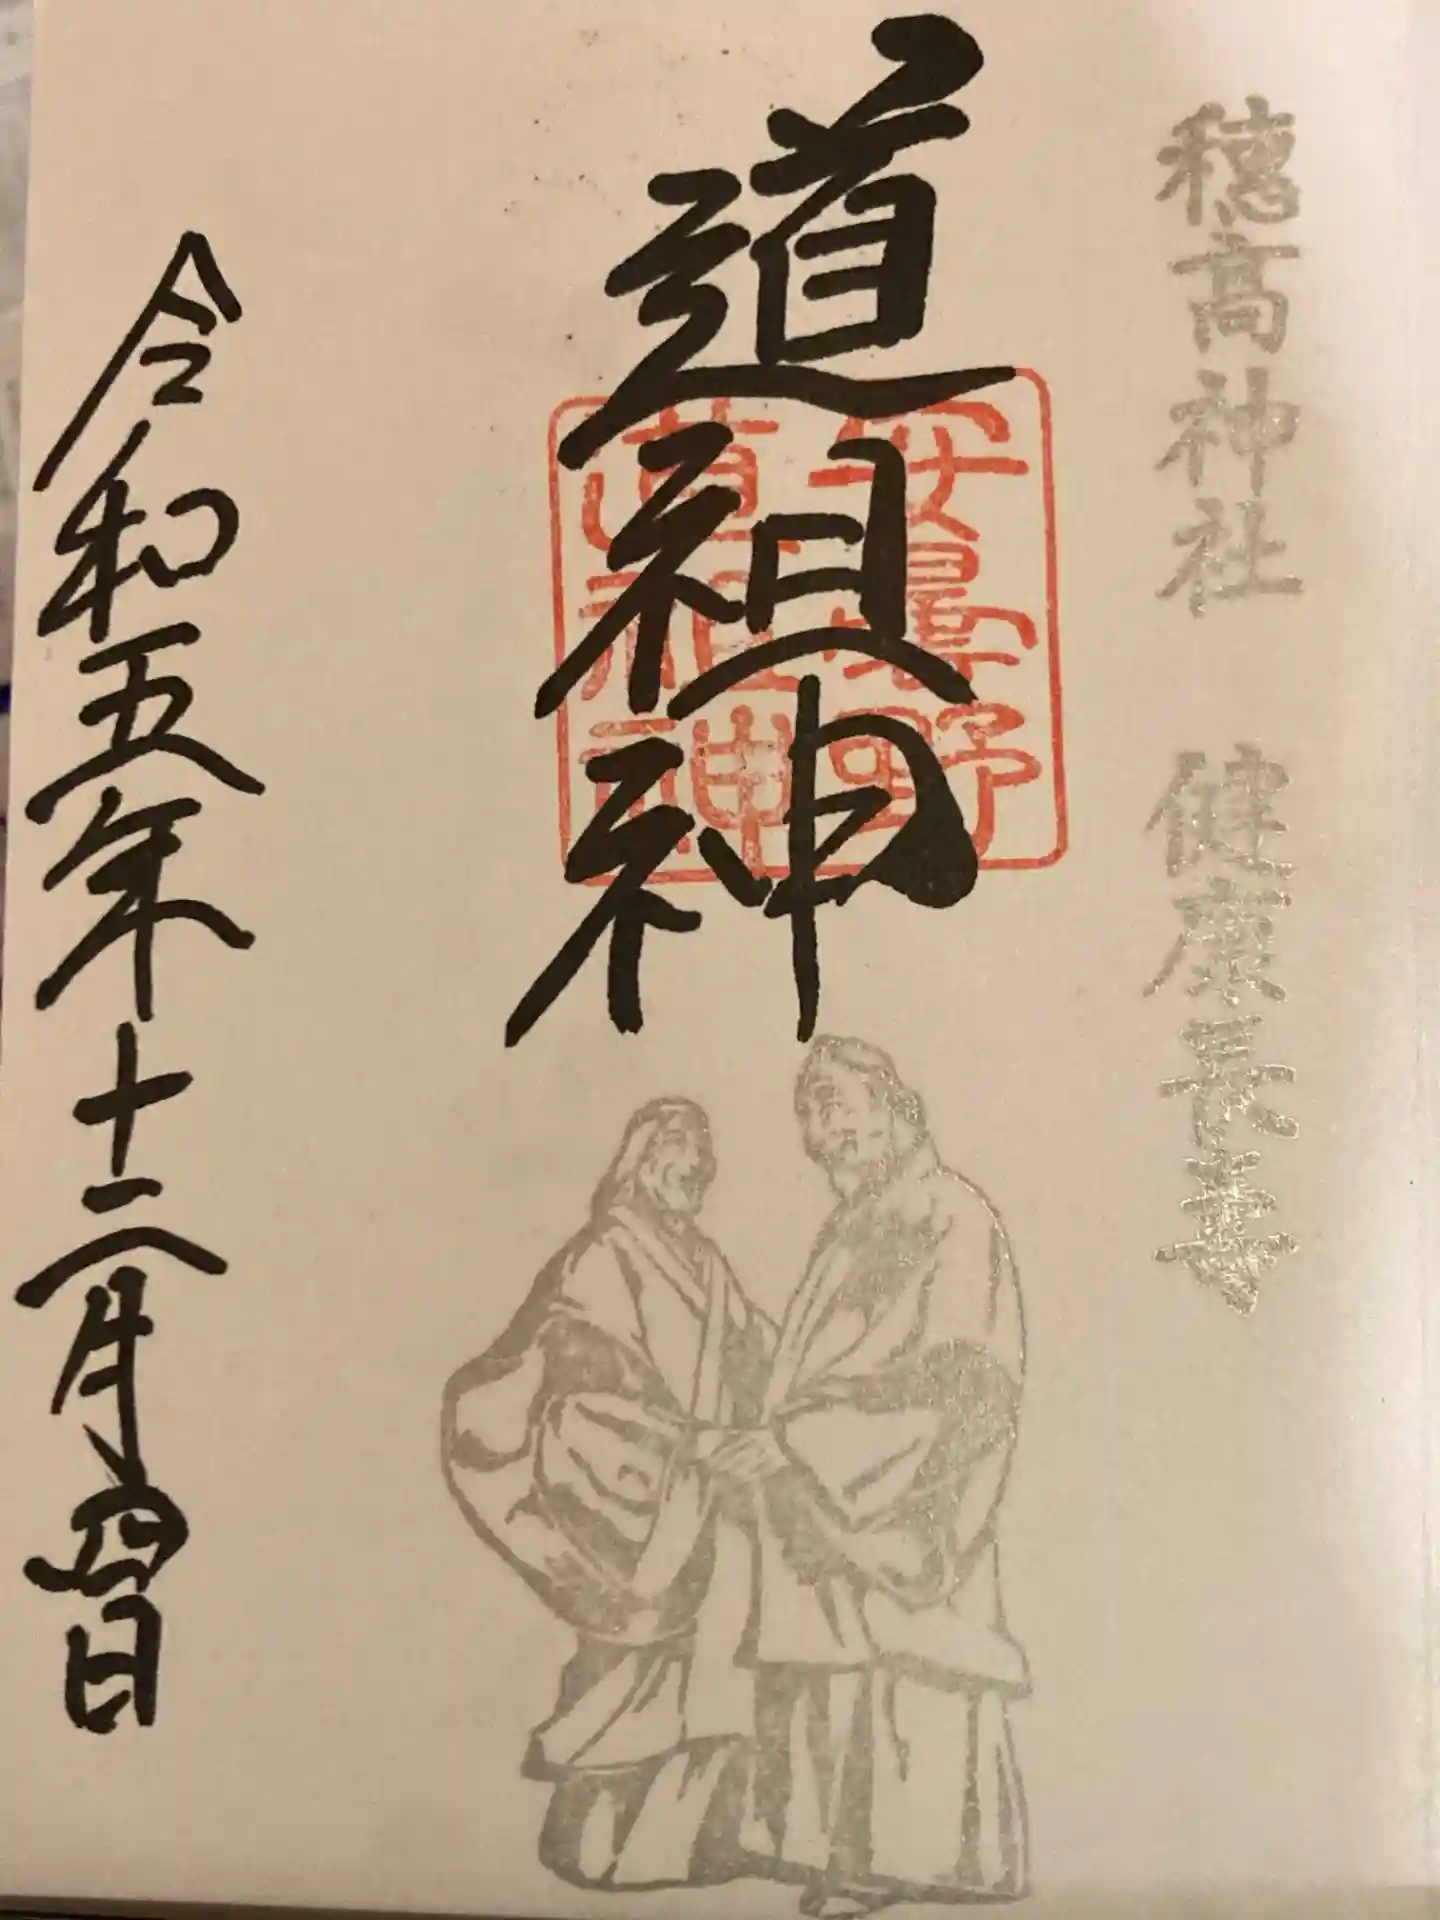 穂高神社　健康長寿
道祖神
安曇野
道祖神
令和五年十二月四日